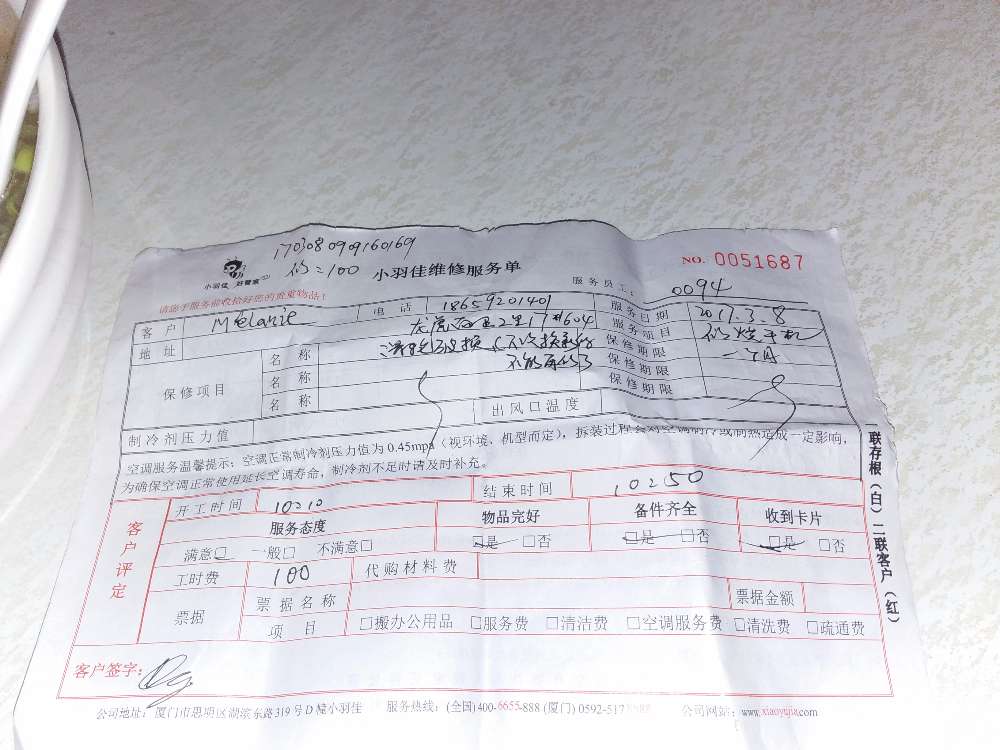 170308090916 0169
小羽佳 好管家
=100
小羽佳维修服务单
NO. 0051687
请您于服务前收拾好您的贵重物品!
服务员工: 0094
客户 Melanie 电话 18659201401 服务日期 2017.3.8
地址 龙虎 二里17#604 服务项目 手机
保修项目 名称 保修期限 一个月
名称 保修期限
名称 保修期限
制冷剂压力值 出风口温度
空调服务温馨提示:空调正常制冷剂压力值为0.45mpa(视环境、机型而定),拆装过程会对空调制冷或制热造成一定影响,
为确保空调正常使用延长空调寿命,制冷剂不足时请及时补充。
客户评定
开工时间 10:10 结束时间 10:50
服务态度 物品完好 备件齐全 收到卡片
满意□ 一般□ 不满意□ □是 □否 □是 □否 □是 □否
工时费 100 代购材料费
票据 票据名称 票据金额
项目 □搬办公用品 □服务费 □清洁费 □空调服务费 □清洗费 □疏通费
客户签字:
一联存根(白) 二联客户(红)
公司地址: 厦门市思明区湖滨东路319号D幢小羽佳 服务热线: (全国)400-6655-888 (厦门) 0592-517 公司网站: www.xiaoyujia.com